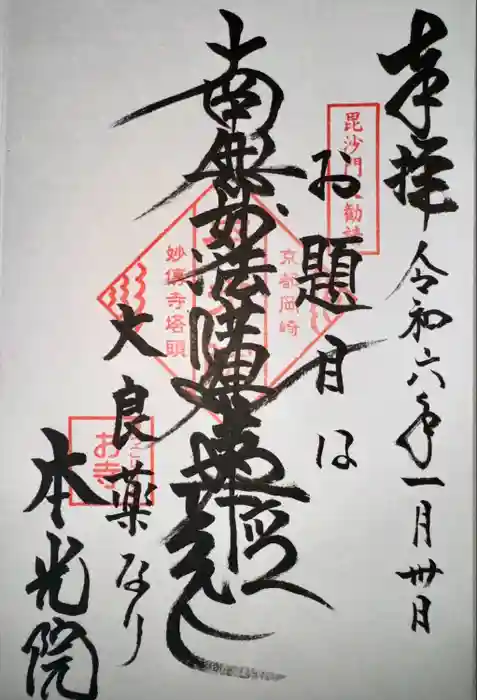 奉拝 令和六年一月卅日
毘沙門天勧請
お題目は
京都岡崎
南無妙法蓮華経
妙傳寺塔頭
大良薬なり
お寺
本光院